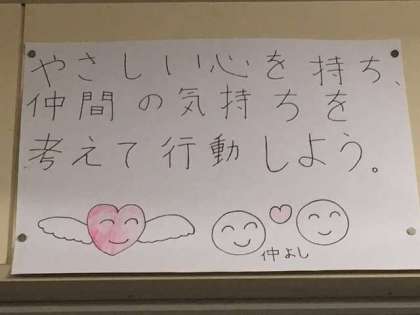 やさしい心を持ち、
仲間の気持ちを
考えて行動しよう。
仲よし